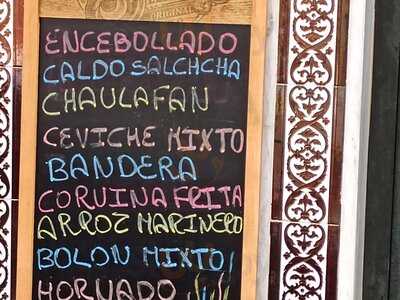 ENCEBOLLADO
CALDO SALCHCHA
CHAULAFAN
CEVICHE MIXTO
BANDERA
CORVINA FRITA
ARROZ MARINERO
BOLON MIXTO!
HORNADO